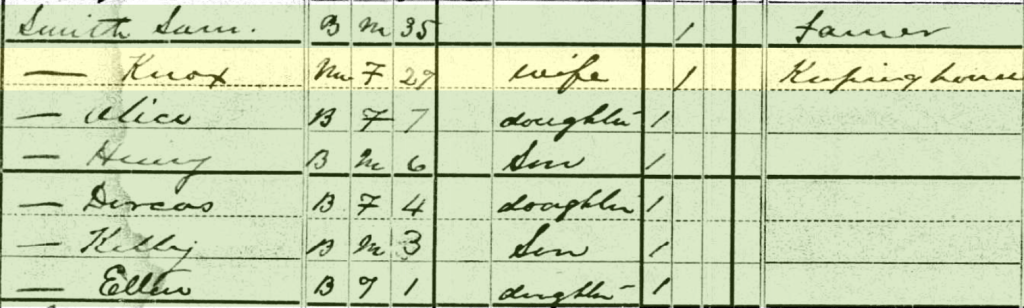 Smith Sam. B M 35 1 Farmer
— Knox Mu F 27 wife 1 Keeping house
— Alice B F 7 doughter 1
— Henry B M 6 Son 1
— Dorcas B F 4 doughter 1
— Kelly B M 3 Son 1
— Ellen B F 1 doughter 1